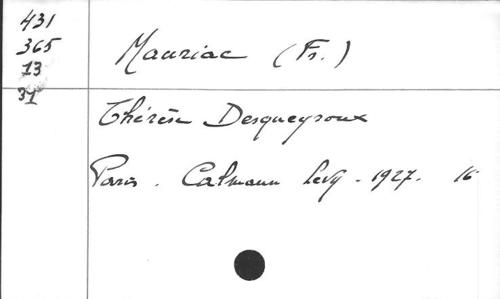 431
365
13
31
Mauriac (Fr.)
Thérèse Desqueyroux
Paris. Calmann Levy - 1927. 16